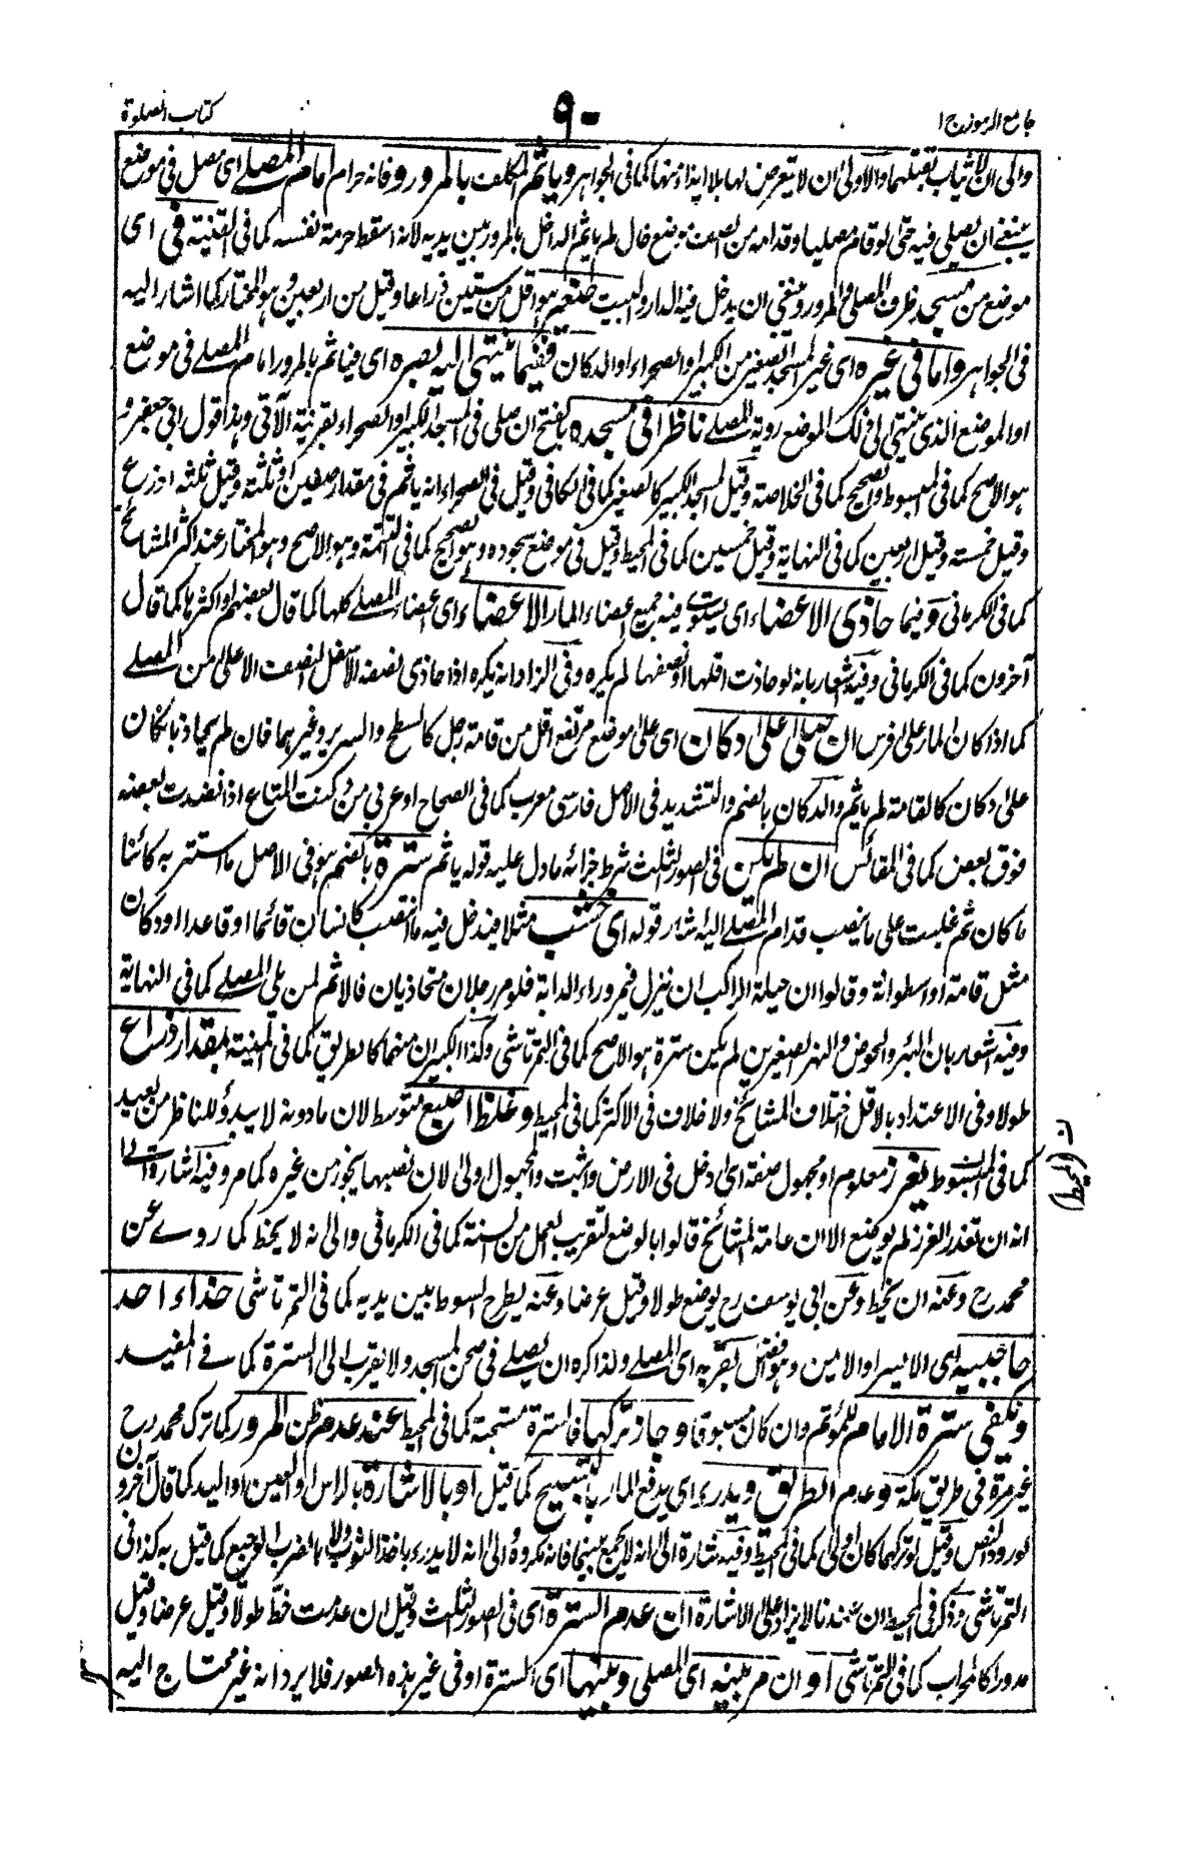 جامع الرموز ج ا
٩٠
كتاب الصلوة
والى ان لا يثاب بقتلهما والاولى ان لا يتعرض لها بلا ايذاء منها كما فى الجواهر وياثم المكلف بالمرور فانه حرام امام المصلے اى مصل فى موضع
ينبغى ان يصلى فيه حتى لو قام مصليا وقدامه من الصف موضع خال لم ياثم الداخل بالمرور بين يديه لانه اسقط حرمة نفسه كما فى القنية فى اى
موضع من مسجد ظرف المصلى والمرور وينبغى ان يدخل فيه الدار والبيت صغير هو اقل من ستين ذراعا وقيل من اربعين وهو المختار كما اشار اليه
فى الجواهر واما فى غيره اى غير المسجد الصغير من الكبير او الصحراء او الدكان ففيما ينتهى اليه بصره اى فياثم بالمرور امام المصلے فى موضع
او الموضع الذى ينتهى الى ذلك الموضع روية المصلے ناظرا فى مسجده بالفتح ان صلى فى المسجد الكبير او الصحراء بقرينة الآتى وهذا قول ابى جعفر و
هو الاصح كما فى المبسوط والصحيح كما فى الخلاصة وقيل المسجد الكبير كالصغير كما فى الكافى وقيل فى الصحراء انه ياثم فى مقدار صفين او ثلثة وقيل ثلثه اذرع
وقيل خمسة وقيل اربعين كما فى النهاية وقيل خمسين كما فى المحيط وقيل فى موضع سجوده وهو الصحيح كما فى التتمة وهو الاصح وهو المختار عند اكثر المشائخ
كما فى الكرمانى وفيما حاذى الاعضاء اى يستوے فيه جميع اعضاء المار الاعضاء اى اعضاء المصلے كلها كما قال بعضهم او اكثرها كما قال
آخرون كما فى الكرمانى وفيه اشعار بانه لو حاذت اقلها او نصفها لم يكره وفى الزاد انه يكره اذا حاذى نصفه الاسفل النصف الاعلى من المصلے
كما اذا كان المار على فرس ان يصلى على دكان اى على موضع مرتفع اقل من قامة رجل كالسطح والسرير وغيرهما فان لم يحاذ بان كان
على دكان كالقامة لم ياثم والدكان بالضم والتشديد فى الاصل فارسى معرب كما فى الصحاح او عربى من دكنت المتاع اذا نضدت بعضه
فوق بعض كما فى المقائس ان لم يكن فى الصور الثلث شرط جزائه ما دل عليه قوله ياثم سترة بالضم هو فى الاصل ما استتر به كائنا
ما كان ثم غلبت على ما ينصب قدام المصلے اليه اشار قوله اى خشب مثلا فيدخل فيه ما انتصب كانسان قائما او قاعدا او دكان
مثل قامة او اسطوانة وقالوا ان حيلة الراكب ان ينزل فيمر وراء الدابة فلو مر رجلان متحاذيان فالاثم لمن يلى المصلے كما فى النهاية
وفيه اشعار بان البئر والحوض والنهر الصغيرين لم يكن سترة هو الاصح كما فى التمرتاشى وكذا الكبيران منهما كالطريق كما فى المنية بمقدار ذراع
طولا وفى الاعتداد بالاقل اختلاف المشائخ ولا خلاف فى الاكثر كما فى المحيط وغلظ اصبع متوسط لان ما دونه لا يبدو للناظر من بعيد
كما فى المبسوط يغرز معلوم او مجهول صفة اى ادخل فى الارض واثبت والمجهول اولى لان نصبها يجوز من غيره كما مر وفيه اشارة الى
انه ان تعذر الغرز لم يوضع الا ان عامة المشائخ قالوا بالوضع لتقريب العمل من السنة كما فى الكرمانى والى انه لا يخط كما روے عن
محمد رح وعنه ان يخط وعن ابى يوسف رح يوضع طولا وقيل عرضا وعنه يطرح السوط بين يديه كما فى التمرتاشى حذاء احد
حاجبيه اى الايسر او الايمن وهو افضل بقربه اى المصلے ولذا كره ان يصلے فى صحن المسجد ولا يقرب الى السترة كما فے المفيد
ويكفى سترة الامام للمؤتم وان كان مسبوقا وجاز تركها فالسترة مستحبة كما فى المحيط عند عدم ظن المرور كما ترك محمد رح
غير مرة فى طريق مكة وعدم الطريق ويدرء اى يدفع المار بالتسبيح كما قيل او بالاشارة بالراس او العين او اليد كما قال آخرون
لورود النص وقيل لو تركهما كان اولى كما فى المحيط وفيه اشارة الى انه لا يجمع بينهما فانه مكروه والى انه لا يدرء باخذ الثوب ولا بالضرب الوجيع كما قيل به كذا فى
التمرتاشى وذكر فى المحيط ان عندنا لا يزاد على الاشارة ان عدم السترة اى فى الصور الثلث وقيل ان عدمت خط طولا وقيل عرضا وقيل
مدورا كالمحراب كما فى التمرتاشى او ان مر بينه اى المصلى وبينها اى السترة او فى غير هذه الصور فلا يرد انه غير محتاج اليه